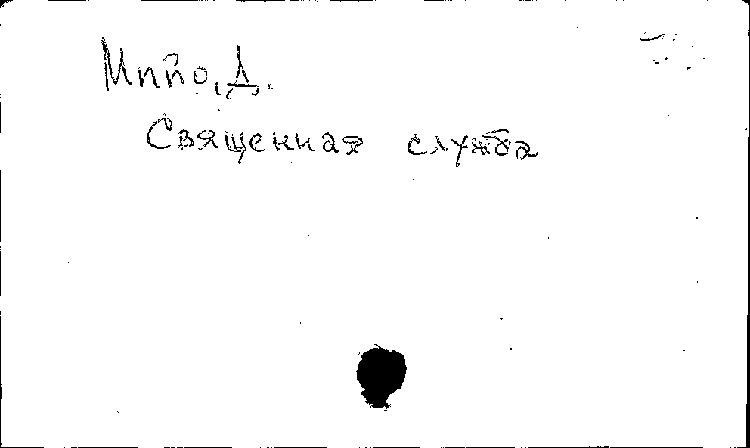 Мийо, Д.
Священная служба